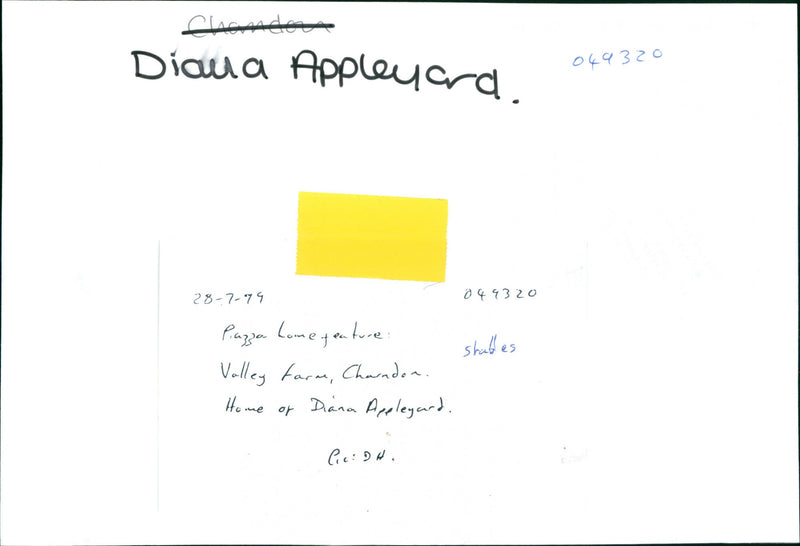 Charndon
Diana Appleyard.
049320
28-7-99
049320
Piazza home feature:
stables
Valley Farm, Charndon.
Home of Diana Appleyard.
Pic: DH.